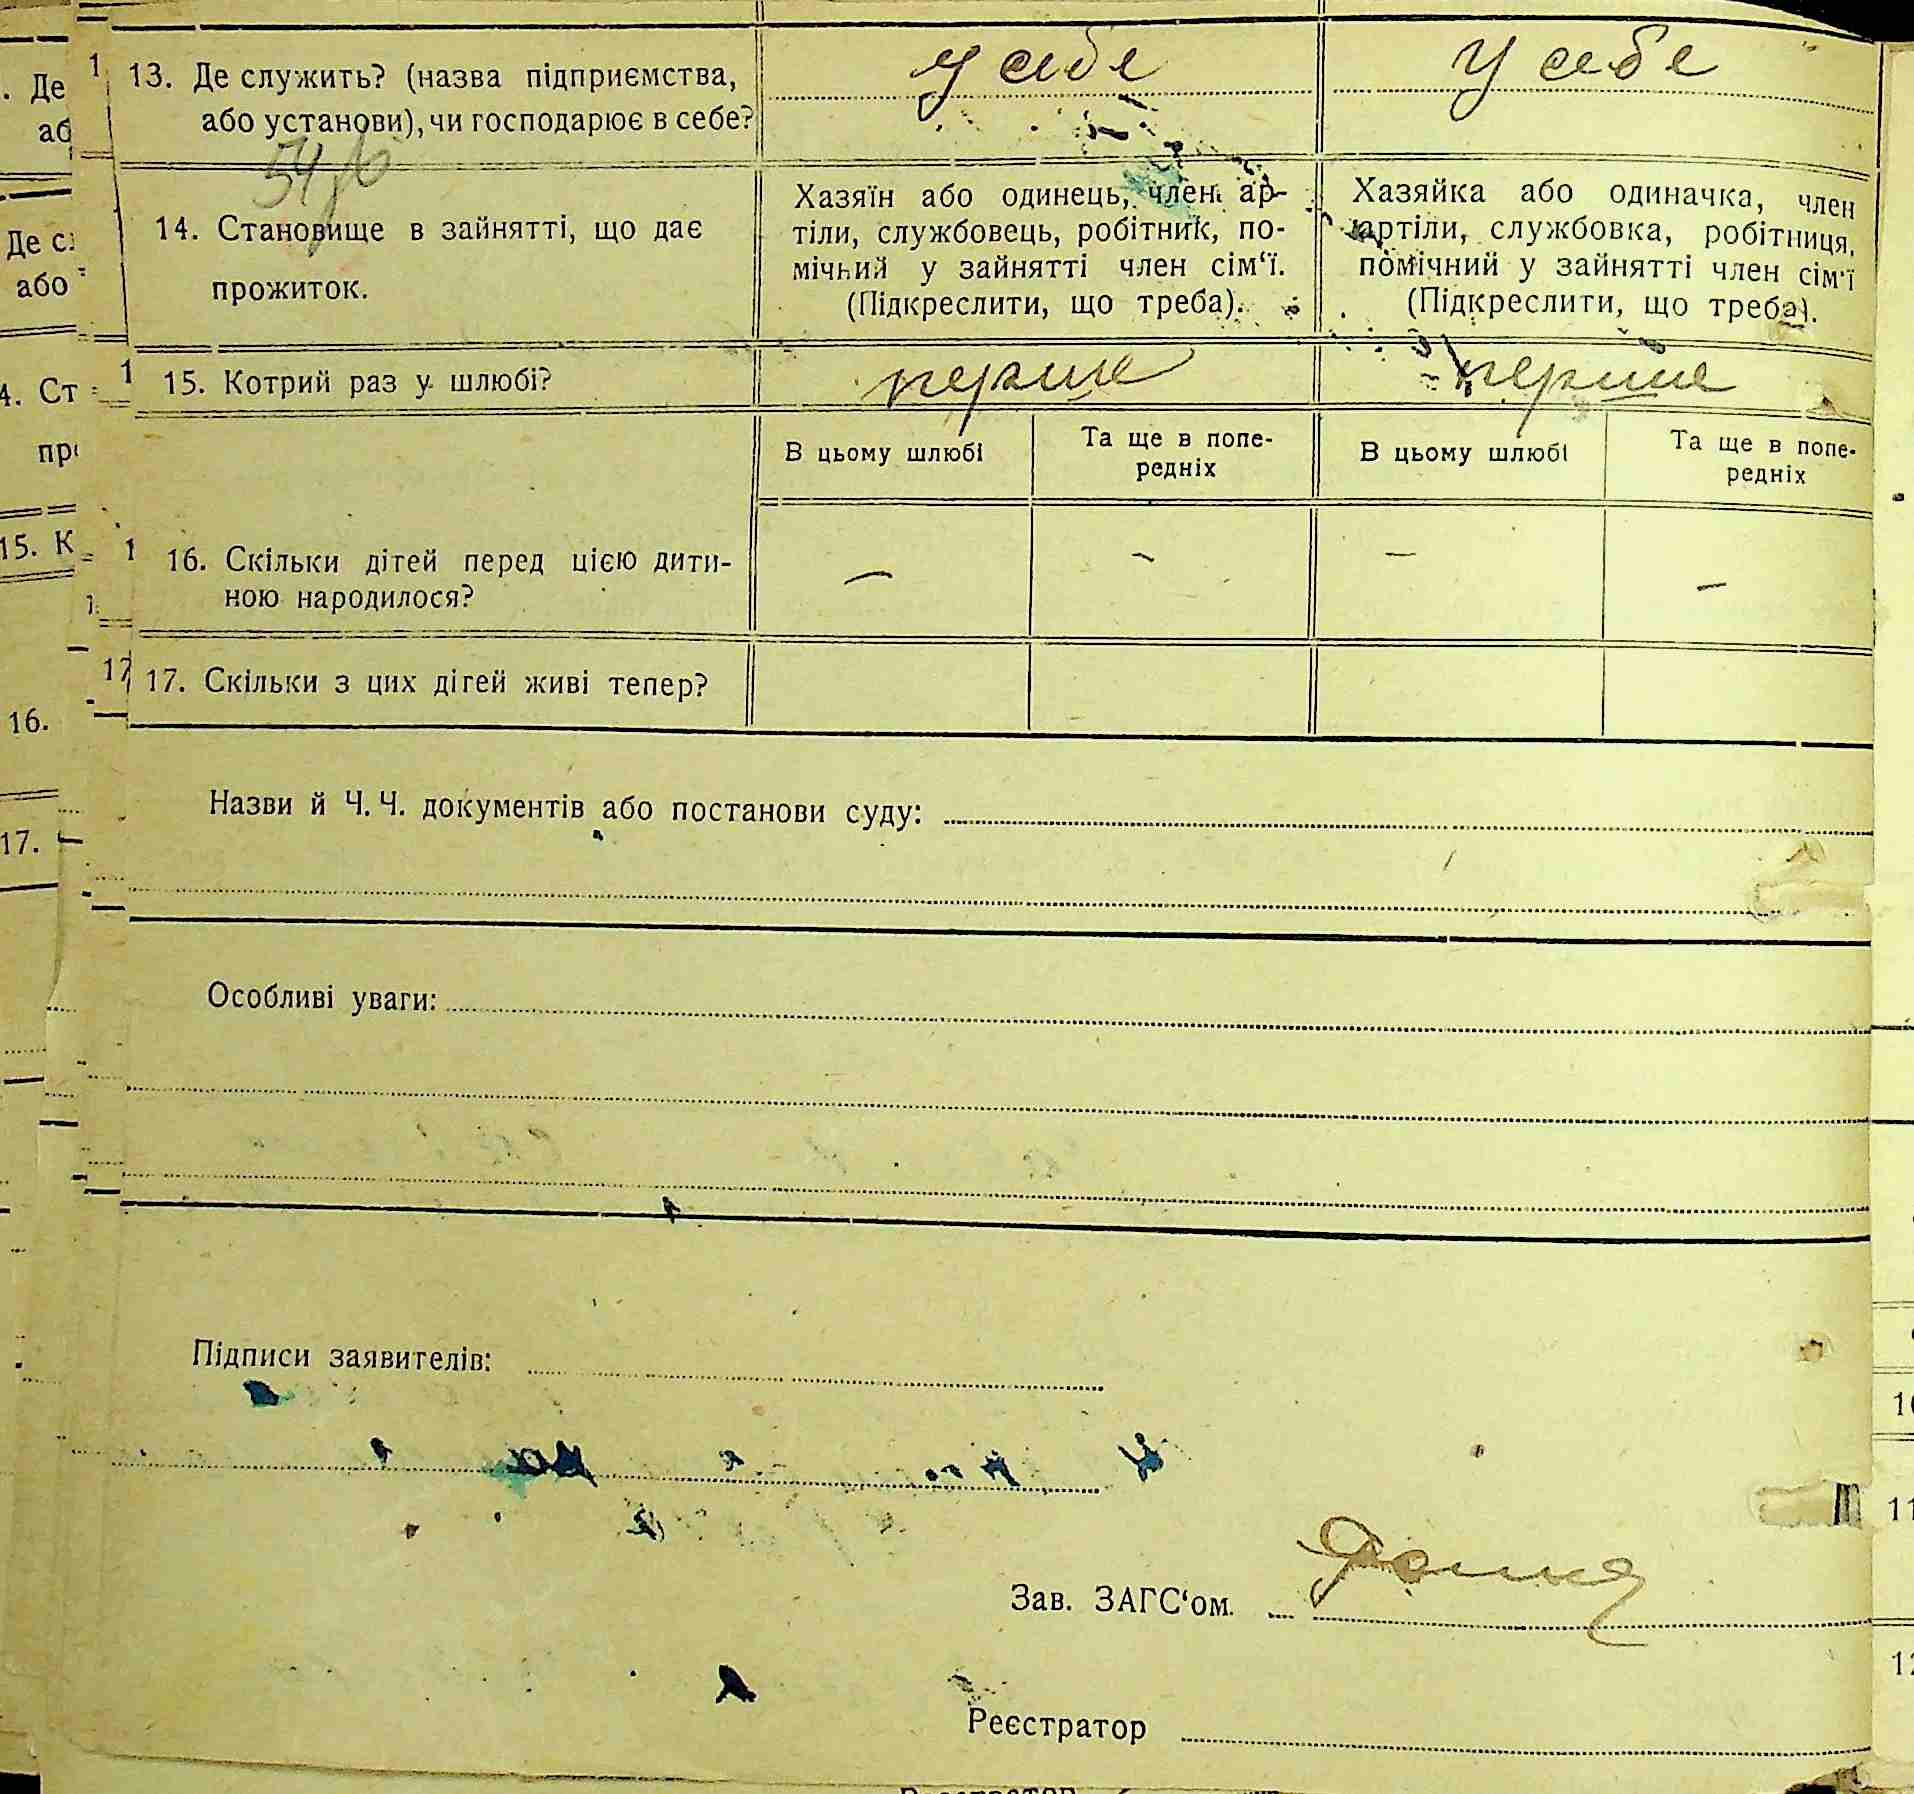 13. Де служить? (назва підприємства, у себе у себе
або установи), чи господарює в себе?
14. Становище в зайнятті, що дає
прожиток.
Хазяїн або одинець, член ар-
тіли, службовець, робітник, по-
мічний у зайнятті член сім‘ї.
(Підкреслити, що треба).
Хазяйка або одиначка, член
артіли, службовка, робітниця,
помічний у зайнятті член сім‘ї
(Підкреслити, що треба).
15. Котрий раз у шлюбі? перше перше
В цьому шлюбі
Та ще в попе-
редніх
В цьому шлюбі
Та ще в попе-
редніх
16. Скільки дітей перед цією дити- — — — —
ною народилося?
17. Скільки з цих дітей живі тепер?
Назви й Ч. Ч. документів або постанови суду:
Особливі уваги:
Підписи заявителів:
Зав. ЗАГС‘ом.
Реєстратор